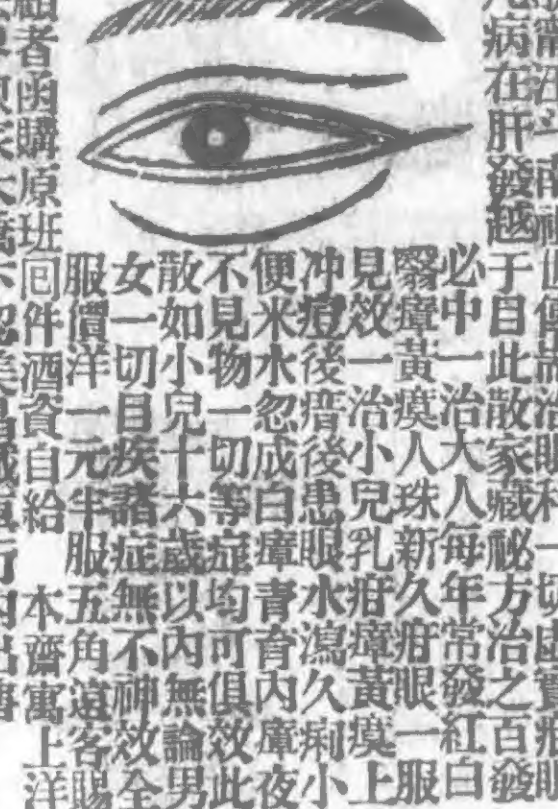 病在肝發越于目此散家藏祕方治之百發
必中一治大人每年常發紅白
翳瘴黃瘼人珠新久疳眼一服
見效一治小兒乳疳瘴黃瘼上
冲痘後瘄後患眼水瀉久痢小
便米水忽成白瘴青盲內瘴夜
不見物一切等症均可俱效此
散如小兒十六歲以內無論男
女一切目疾諸症無不神效全
服價洋一元半服五角遠客賜
顧者函購原班囘件酒資自給　本齋寓上洋